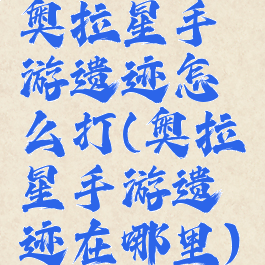 奥拉星手
游遗迹怎
么打(奥拉
星手游遗
迹在哪里)